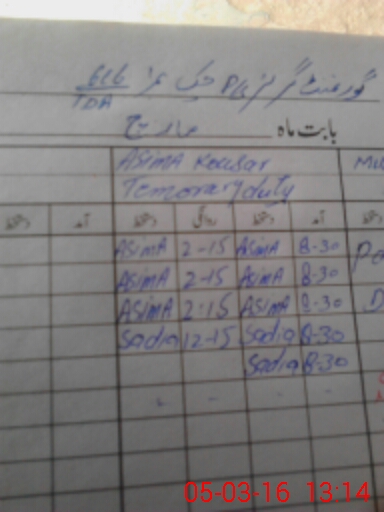 گورنمنٹ گرلز P/S چک نمبر 616/TDA
بابت ماہ مارچ
ASimA Kousar
Temorary duty
دستخط آمد دستخط روانگی دستخط آمد
ASimA 2-15 ASimA 8-30
ASimA 2-15 ASimA 8-30
ASimA 2-15 ASimA 8-30
Sadia 12-15 Sadia 8-30
Sadia 8-30
05-03-16 13:14